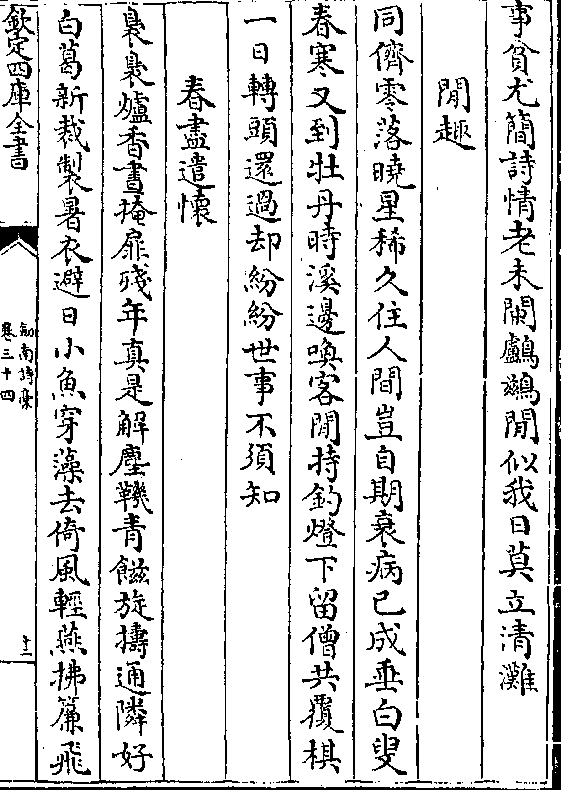 事貧尤簡詩情老未闌鸕鷀閒似我日莫立清灘
閒趣
同儕零落曉星稀久住人間豈自期衰病已成垂白叟
春寒又到牡丹時溪邊喚客閒持釣燈下留僧共覆棋
一日轉頭還過却紛紛世事不須知
春盡遣懷
裊裊爐香晝掩扉殘年真是解塵鞿青䭉旋擣通隣好
白葛新裁製暑衣避日小魚穿藻去倚風輕燕拂簾飛
欽定四庫全書
劍南詩稾
卷三十四
十二